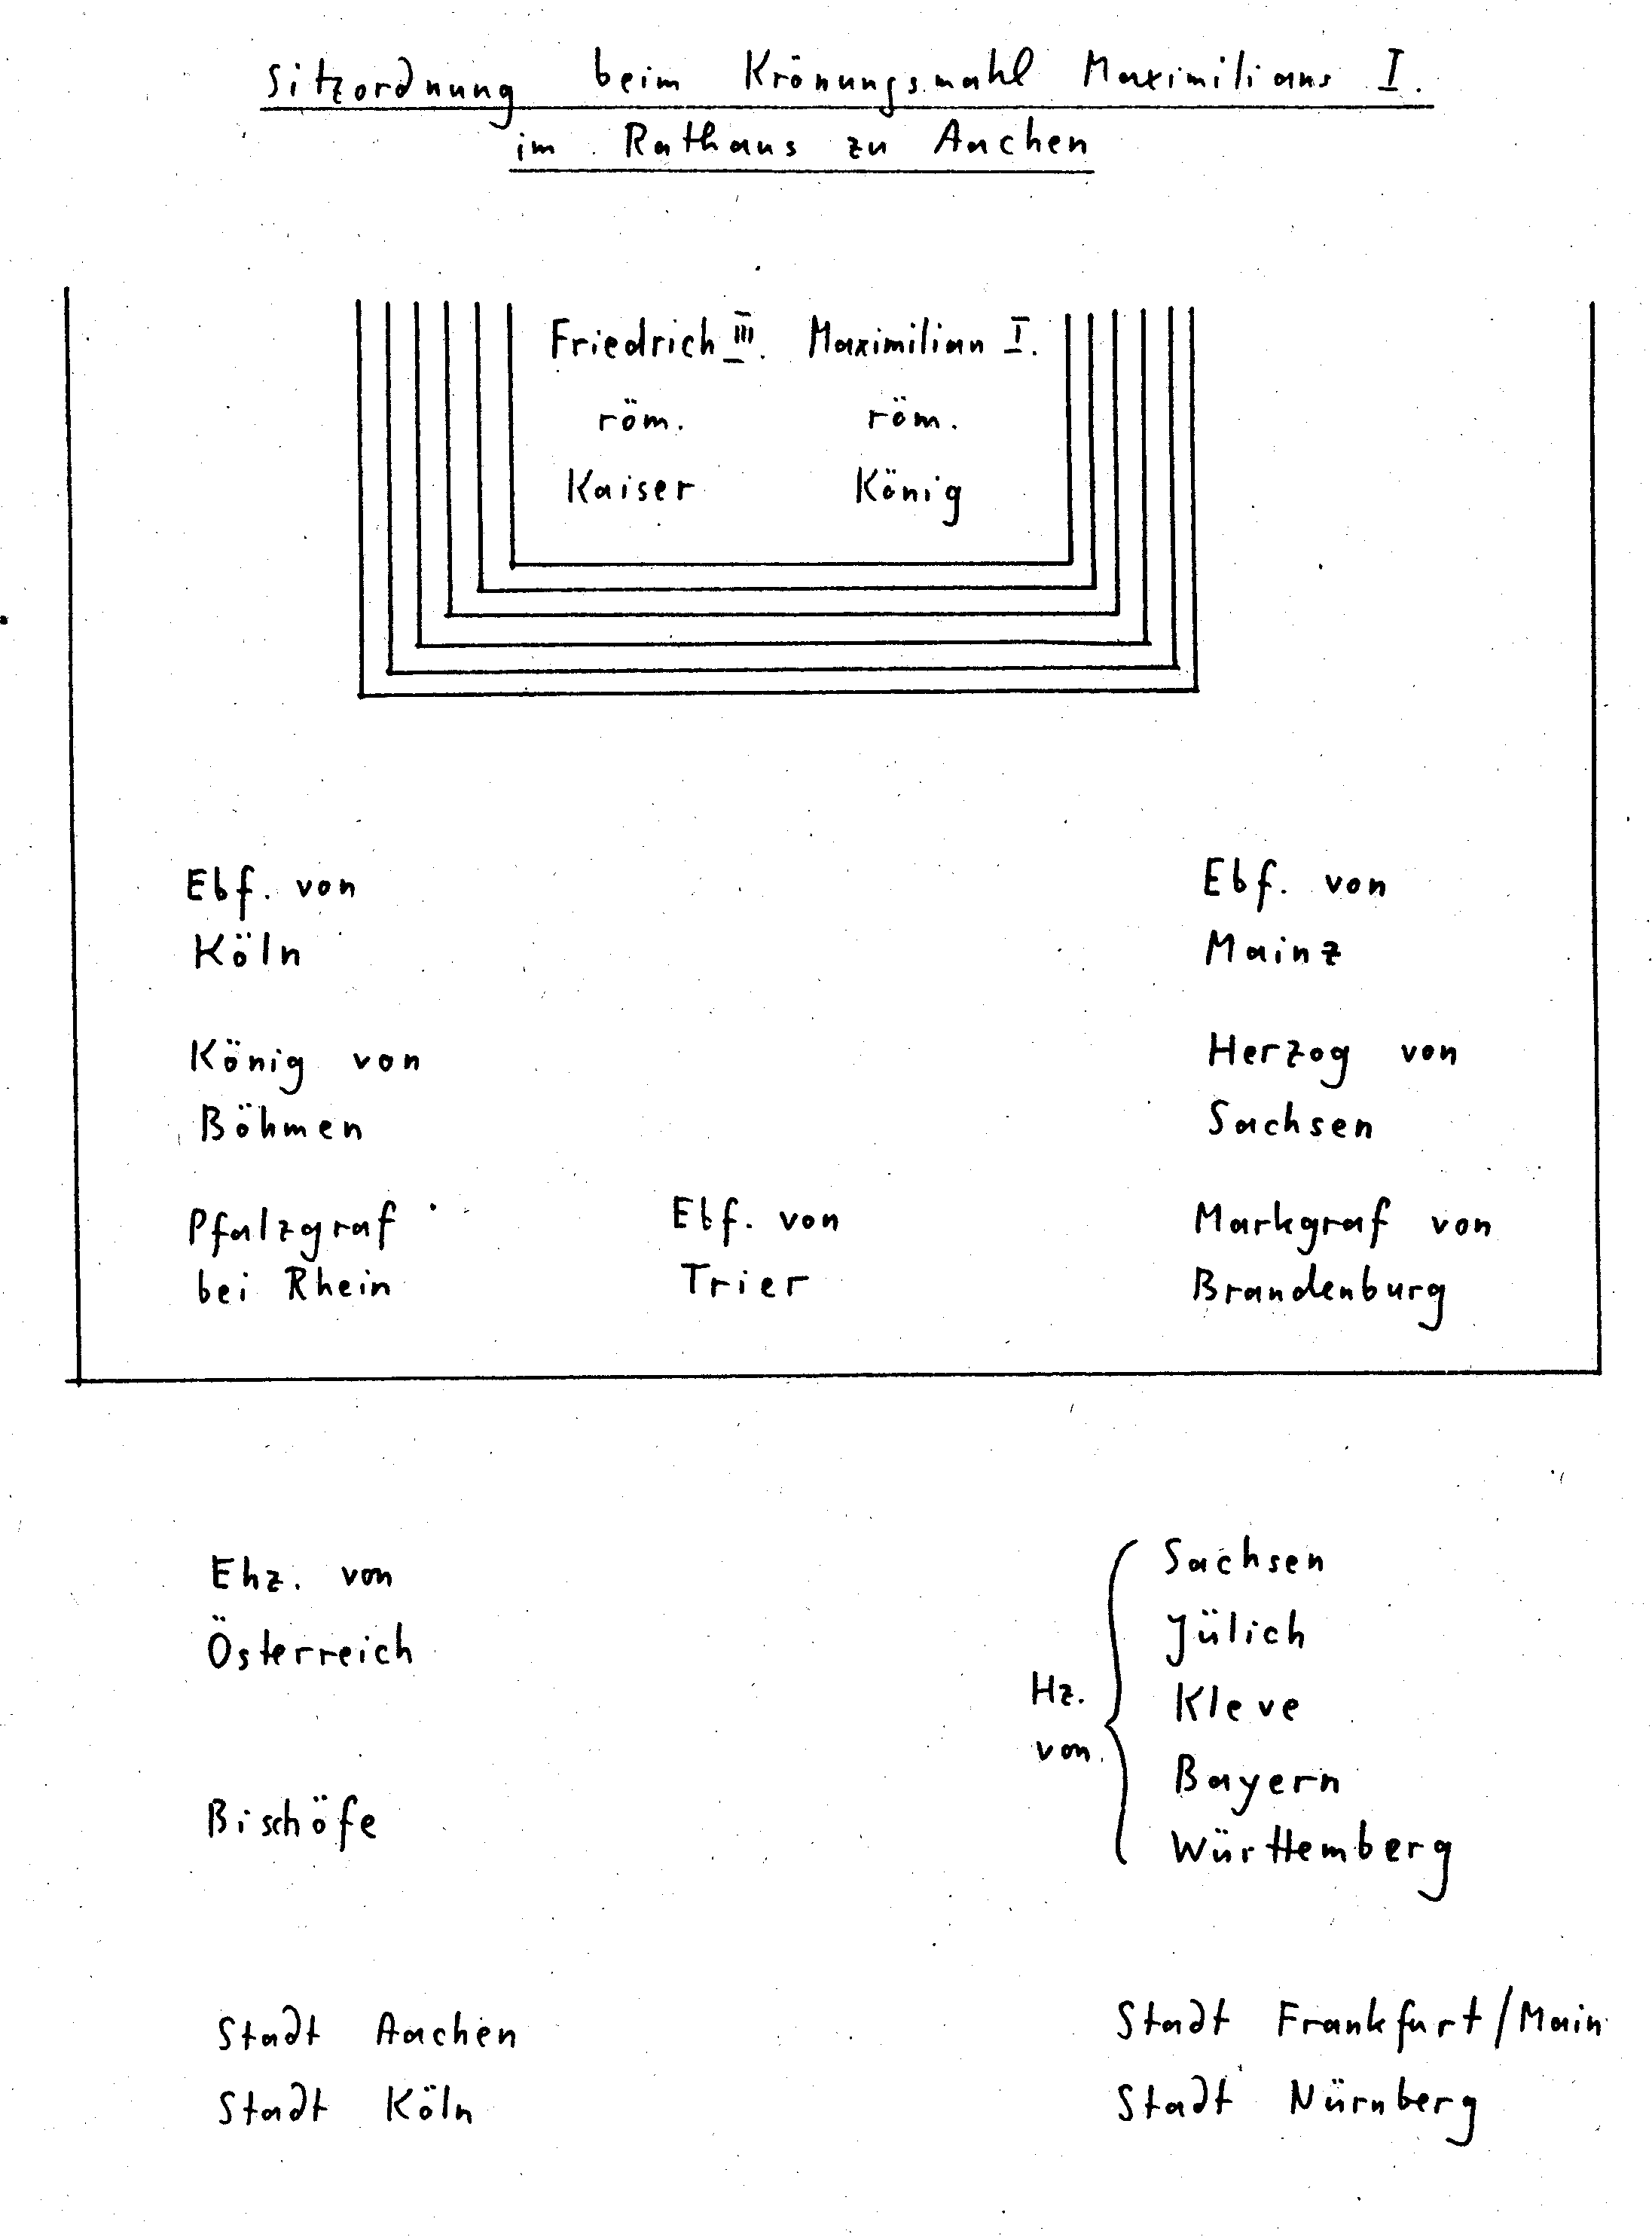 Sitzordnung beim Krönungsmahl Maximilians I.
im Rathaus zu Aachen
Friedrich III. Maximilian I.
röm. röm.
Kaiser König
Ebf. von Ebf. von
Köln Mainz
König von Herzog von
Böhmen Sachsen
Pfalzgraf Ebf. von Markgraf von
bei Rhein Trier Brandenburg
Ehz. von
Österreich
Bischöfe
Hz.
von
Sachsen
Jülich
Kleve
Bayern
Württemberg
Stadt Aachen Stadt Frankfurt/Main
Stadt Köln Stadt Nürnberg